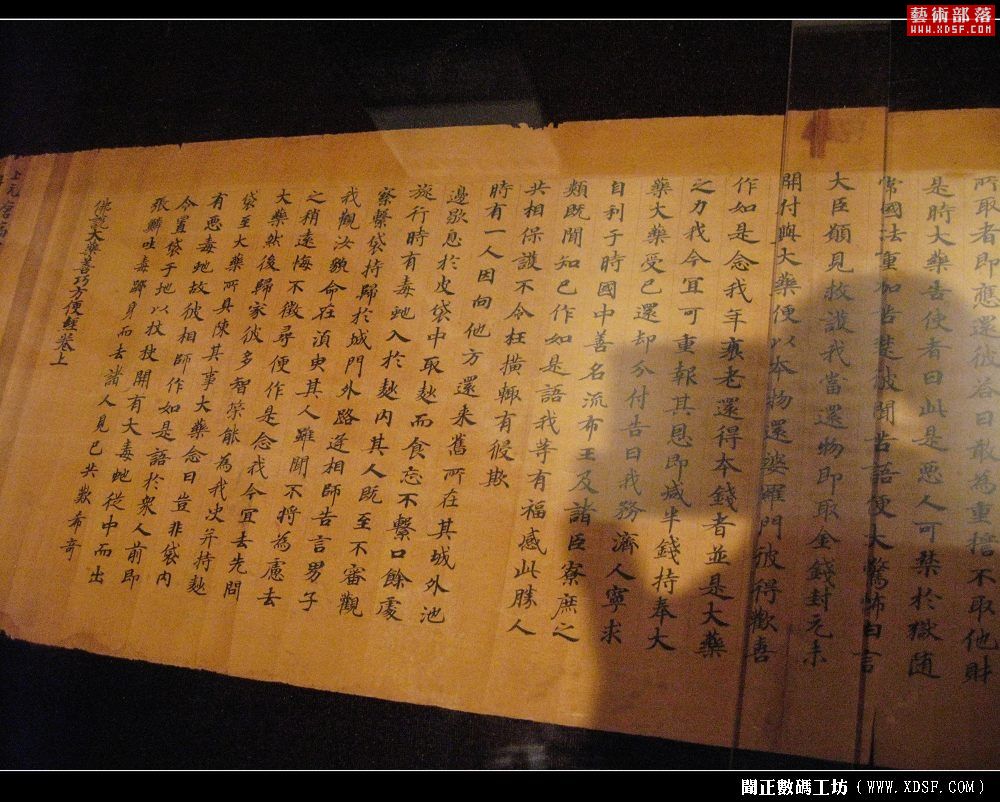 藝術部落
WWW.XDSF.COM
所取者即應還彼答曰敢為重擔不取他財
是時大藥告使者曰此是惡人可禁於獄随
常國法重加苦楚彼聞苦語便大驚怖白言
大臣願見救護我當還物即取金錢封元未
開付與大藥便以本物還婆羅門彼得歡喜
作如是念我年衰老還得本錢者並是大藥
之力我今宜可重報其恩即減半錢持奉大
藥大藥受已還却分付告曰我務濟人寧求
自利于時國中善名流布王及諸臣寮庶之
類既聞知已作如是語我等有福感此勝人
共相保護不令枉橫輙有侵欺
時有一人因向他方還来舊所在其城外池
邊歇息於皮袋中取麨而食忘不繫口餘處
旅行時有毒虵入於麨内其人既至不審觀
察繫袋持歸於城門外路逢相師告言男子
我觀汝貌命在湏臾其人雖聞不將為慮去
之稍遠悔不徵尋便作是念我今宜去先問
大藥然後歸家彼多智策能為我决并持麨
袋至大藥所具陳其事大藥念曰豈非袋内
有惡毒虵故彼相師作如是語於衆人前即
令置袋于地以杖挍開有大毒虵從中而出
張鱗吐毒躑身而去諸人見已共歎希奇
佛說大藥善巧方便經卷上
上元
聞正數碼工坊（WWW.XDSF.COM）